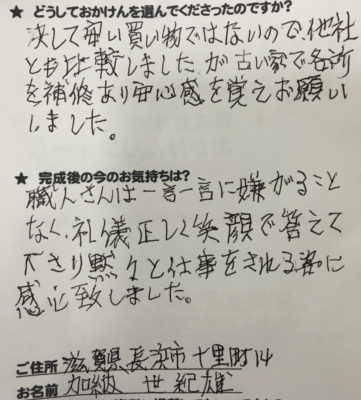 ★ どうしておかけんを選んでくださったのですか?
決して安い買い物ではないので、他社
とも比較しましたが古い家で各所
を補修あり安心感を覚えお願い
しました。
★ 完成後の今のお気持ちは?
職人さんは一言一言に嫌がること
なく、礼儀正しく笑顔で答えて
下さり黙々と仕事をされる姿に
感心致しました。
ご住所 滋賀県長浜市十里町14
お名前 加納 世紀雄